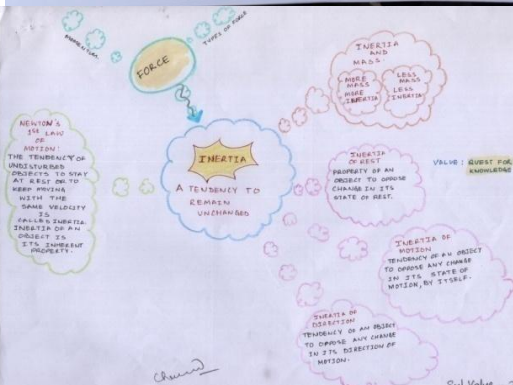 MOMENTUM
TYPES OF FORCE
FORCE
INERTIA
AND
MASS
MORE
MASS
MORE
INERTIA
LESS
MASS
LESS
INERTIA
NEWTON'S
1ST LAW
OF
MOTION:
THE TENDENCY OF
UNDISTURBED
OBJECTS TO STAY
AT REST OR TO
KEEP MOVING
WITH THE
SAME VELOCITY
IS
CALLED INERTIA.
INERTIA OF AN
OBJECT IS
ITS INHERENT
PROPERTY.
INERTIA
A TENDENCY TO
REMAIN
UNCHANGED
INERTIA
OF REST
PROPERTY OF AN
OBJECT TO OPPOSE
CHANGE IN ITS
STATE OF REST.
VALUE: QUEST FOR
KNOWLEDGE
INERTIA OF
MOTION
TENDENCY OF AN OBJECT
TO OPPOSE ANY CHANGE
IN ITS STATE OF
MOTION, BY ITSELF.
INERTIA OF
DIRECTION
TENDENCY OF AN OBJECT
TO OPPOSE ANY CHANGE
IN ITS DIRECTION OF
MOTION.